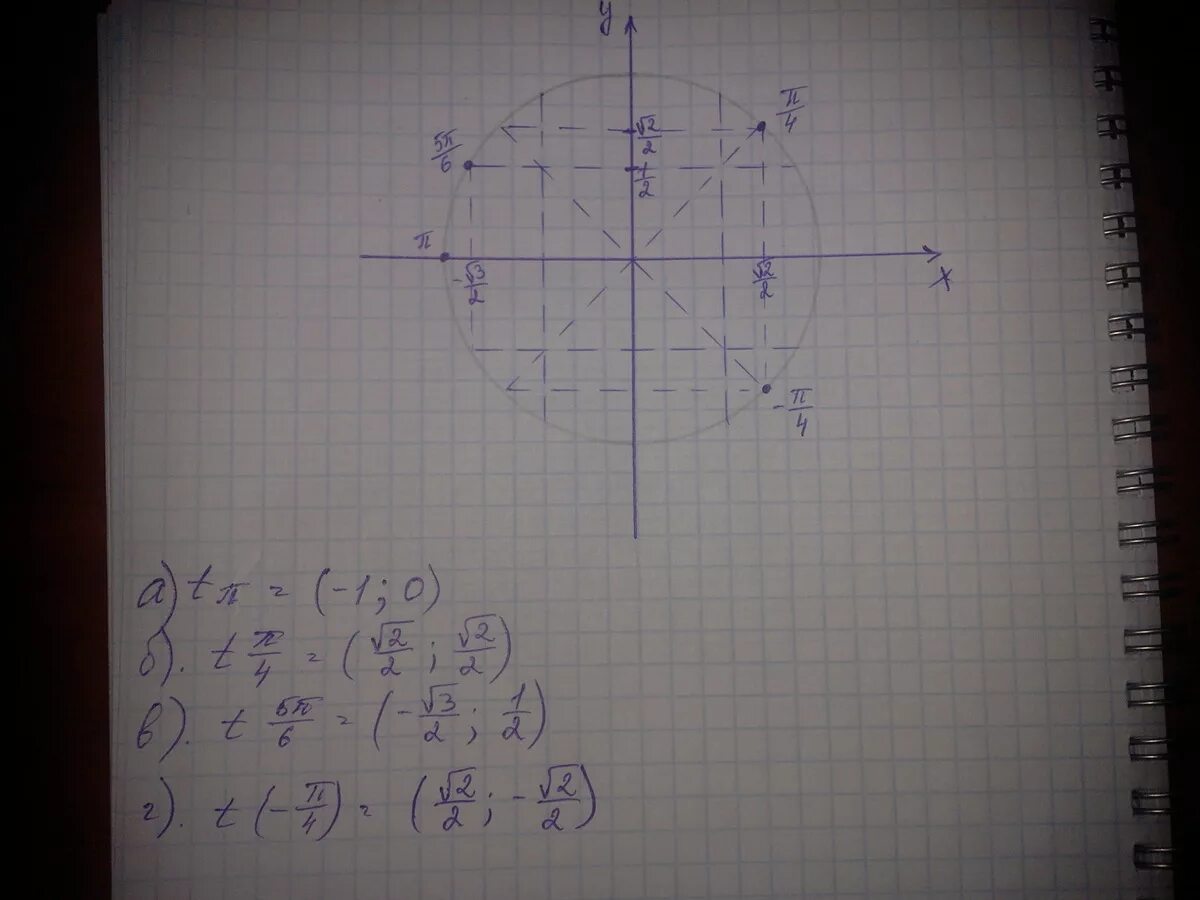 y
π/4
√2/2
5π/6
1/2
π
-√3/2
√2/2
x
-π/4
а) t π = (-1; 0)
б). t π/4 = (√2/2; √2/2)
в). t 5π/6 = (-√3/2; 1/2)
г). t (-π/4) = (√2/2; -√2/2)